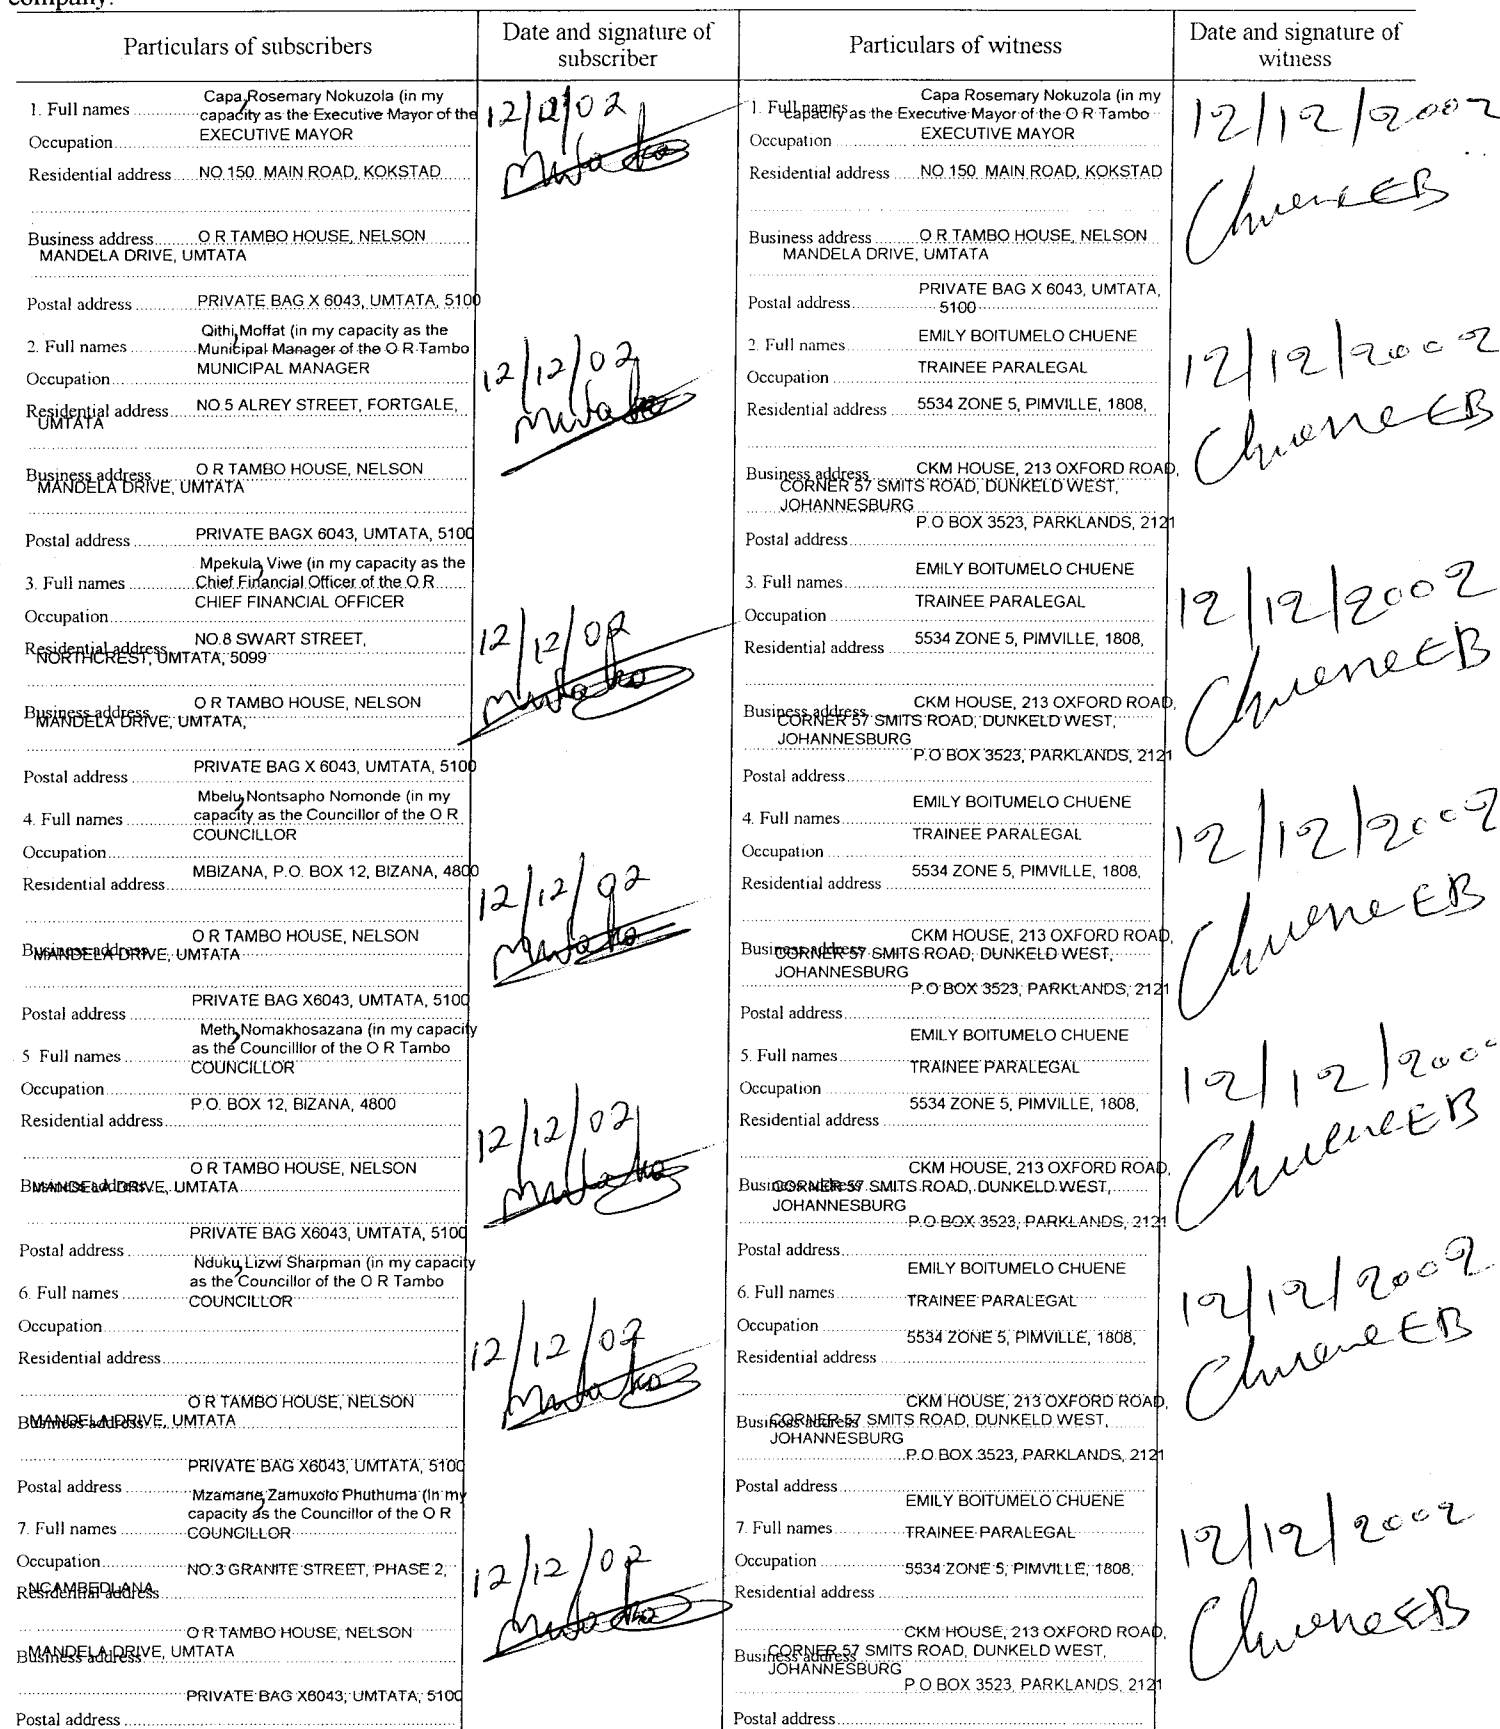 company.
Particulars of subscribers
Date and signature of subscriber
Particulars of witness
Date and signature of witness
1. Full names Capa, Rosemary Nokuzola (in my
capacity as the Executive Mayor of the
Occupation EXECUTIVE MAYOR
Residential address NO 150 MAIN ROAD, KOKSTAD
Business address O R TAMBO HOUSE, NELSON
MANDELA DRIVE, UMTATA
Postal address PRIVATE BAG X 6043, UMTATA, 5100
12/12/02
1. Full names Capa Rosemary Nokuzola (in my
capacity as the Executive Mayor of the O R Tambo
Occupation EXECUTIVE MAYOR
Residential address NO 150 MAIN ROAD, KOKSTAD
Business address O R TAMBO HOUSE, NELSON
MANDELA DRIVE, UMTATA
Postal address PRIVATE BAG X 6043, UMTATA,
5100
12/12/2002
Chuene EB
2. Full names Qithi, Moffat (in my capacity as the
Municipal Manager of the O R Tambo
Occupation MUNICIPAL MANAGER
Residential address NO.5 ALREY STREET, FORTGALE,
UMTATA
Business address O R TAMBO HOUSE, NELSON
MANDELA DRIVE, UMTATA
Postal address PRIVATE BAGX 6043, UMTATA, 5100
12/12/02
2. Full names EMILY BOITUMELO CHUENE
Occupation TRAINEE PARALEGAL
Residential address 5534 ZONE 5, PIMVILLE, 1808,
Business address CKM HOUSE, 213 OXFORD ROAD,
CORNER 57 SMITS ROAD, DUNKELD WEST,
JOHANNESBURG
Postal address P.O BOX 3523, PARKLANDS, 2121
12/12/2002
Chuene EB
3. Full names Mpekula, Viwe (in my capacity as the
Chief Financial Officer of the O R
Occupation CHIEF FINANCIAL OFFICER
Residential address NO.8 SWART STREET,
NORTHCREST, UMTATA, 5099
Business address O R TAMBO HOUSE, NELSON
MANDELA DRIVE, UMTATA,
Postal address PRIVATE BAG X 6043, UMTATA, 5100
12/12/02
3. Full names EMILY BOITUMELO CHUENE
Occupation TRAINEE PARALEGAL
Residential address 5534 ZONE 5, PIMVILLE, 1808,
Business address CKM HOUSE, 213 OXFORD ROAD,
CORNER 57 SMITS ROAD, DUNKELD WEST,
JOHANNESBURG
Postal address P.O BOX 3523, PARKLANDS, 2121
12/12/2002
Chuene EB
4. Full names Mbelu, Nontsapho Nomonde (in my
capacity as the Councillor of the O R
Occupation COUNCILLOR
Residential address MBIZANA, P.O. BOX 12, BIZANA, 4800
Business address O R TAMBO HOUSE, NELSON
MANDELA DRIVE, UMTATA
Postal address PRIVATE BAG X6043, UMTATA, 5100
12/12/02
4. Full names EMILY BOITUMELO CHUENE
Occupation TRAINEE PARALEGAL
Residential address 5534 ZONE 5, PIMVILLE, 1808,
Business address CKM HOUSE, 213 OXFORD ROAD,
CORNER 57 SMITS ROAD, DUNKELD WEST,
JOHANNESBURG
Postal address P.O BOX 3523, PARKLANDS, 2121
12/12/2002
Chuene EB
5 Full names Meth, Nomakhosazana (in my capacity
as the Councilllor of the O R Tambo
Occupation COUNCILLOR
Residential address P.O. BOX 12, BIZANA, 4800
Business address O R TAMBO HOUSE, NELSON
MANDELA DRIVE, UMTATA
Postal address PRIVATE BAG X6043, UMTATA, 5100
12/12/02
5. Full names EMILY BOITUMELO CHUENE
Occupation TRAINEE PARALEGAL
Residential address 5534 ZONE 5, PIMVILLE, 1808,
Business address CKM HOUSE, 213 OXFORD ROAD,
CORNER 57 SMITS ROAD, DUNKELD WEST,
JOHANNESBURG
Postal address P.O BOX 3523, PARKLANDS, 2121
12/12/200
Chuene EB
6. Full names Nduku, Lizwi Sharpman (in my capacity
as the Councillor of the O R Tambo
COUNCILLOR
Occupation
Residential address
Business address O R TAMBO HOUSE, NELSON
MANDELA DRIVE, UMTATA
Postal address PRIVATE BAG X6043, UMTATA, 5100
12/12/02
6. Full names EMILY BOITUMELO CHUENE
Occupation TRAINEE PARALEGAL
Residential address 5534 ZONE 5, PIMVILLE, 1808,
Business address CKM HOUSE, 213 OXFORD ROAD,
CORNER 57 SMITS ROAD, DUNKELD WEST,
JOHANNESBURG
Postal address P.O BOX 3523, PARKLANDS, 2121
12/12/2002
Chuene EB
7. Full names Mzamane, Zamuxolo Phuthuma (In my
capacity as the Councillor of the O R
COUNCILLOR
Occupation
Residential address NO.3 GRANITE STREET, PHASE 2,
NCAMBEDLANA
Business address O R TAMBO HOUSE, NELSON
MANDELA DRIVE, UMTATA
Postal address PRIVATE BAG X6043, UMTATA, 5100
12/12/02
7. Full names EMILY BOITUMELO CHUENE
Occupation TRAINEE PARALEGAL
Residential address 5534 ZONE 5, PIMVILLE, 1808,
Business address CKM HOUSE, 213 OXFORD ROAD,
CORNER 57 SMITS ROAD, DUNKELD WEST,
JOHANNESBURG
Postal address P.O BOX 3523, PARKLANDS, 2121
12/12/2002
Chuene EB